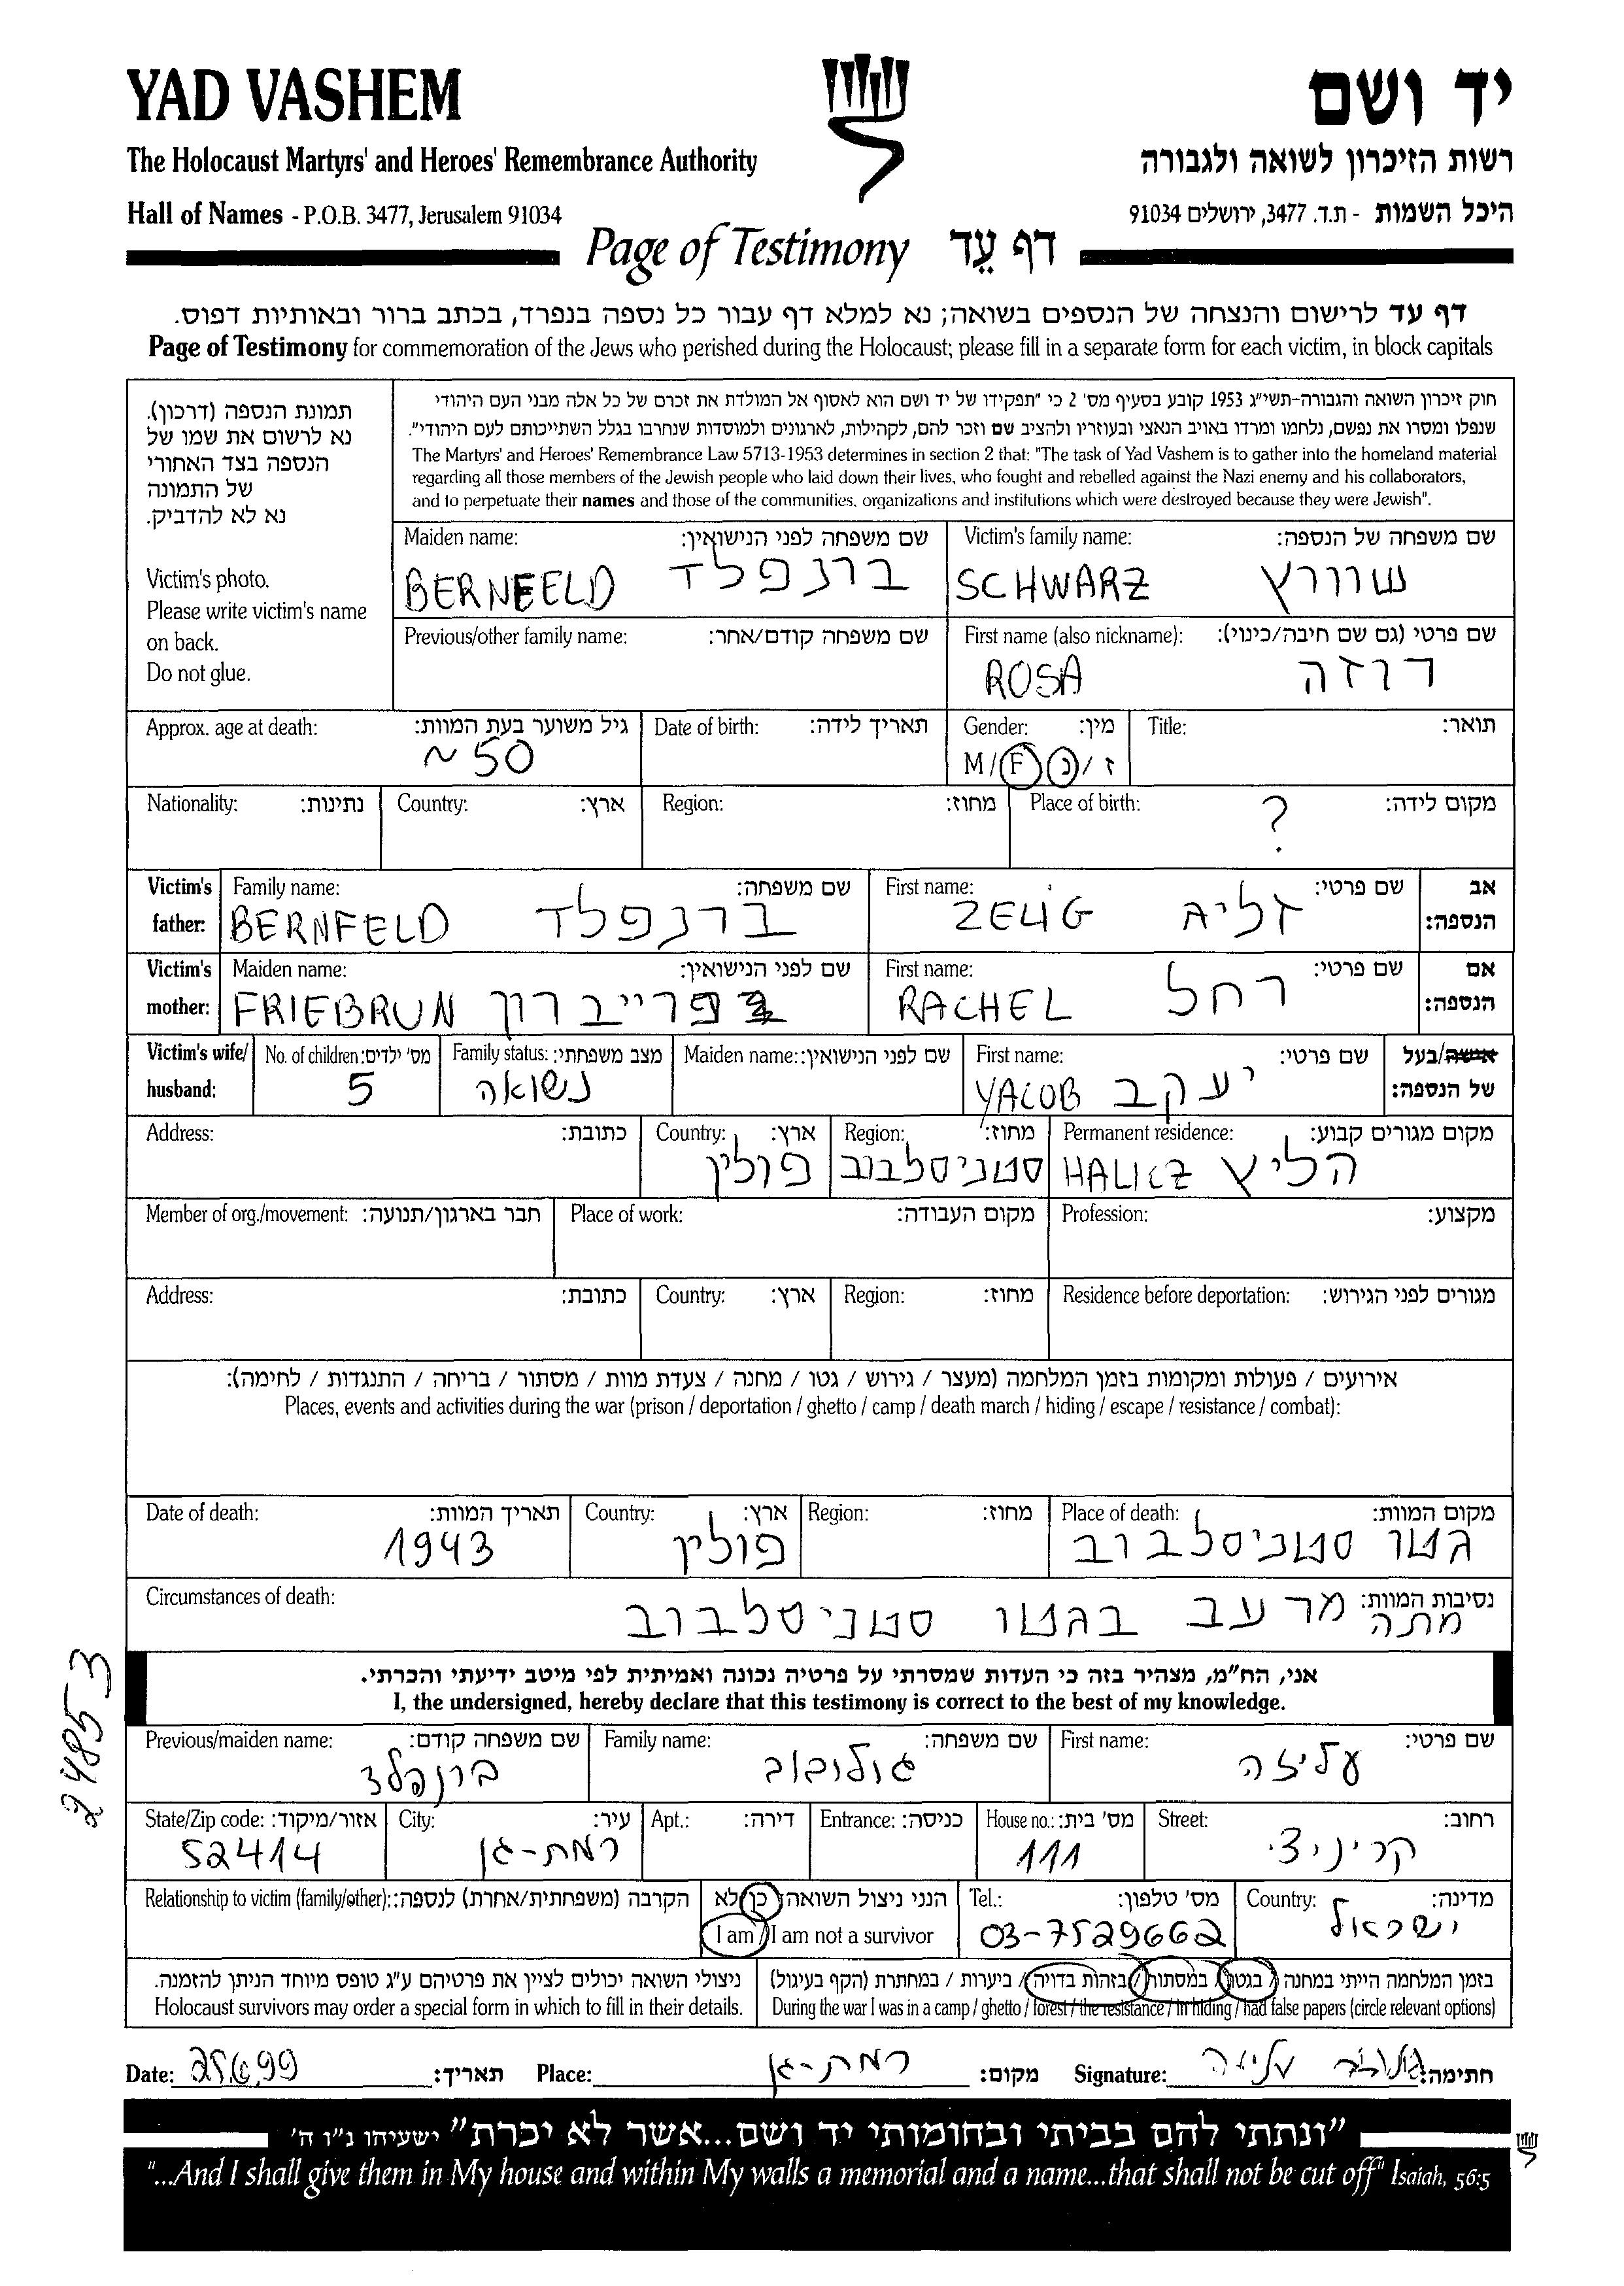 YAD VASHEM
יד ושם
The Holocaust Martyrs' and Heroes' Remembrance Authority
רשות הזיכרון לשואה ולגבורה
Hall of Names - P.O.B. 3477, Jerusalem 91034
היכל השמות - ת.ד. 3477, ירושלים 91034
Page of Testimony דף עֵד
דף עד לרישום והנצחה של הנספים בשואה; נא למלא דף עבור כל נספה בנפרד, בכתב ברור ובאותיות דפוס.
Page of Testimony for commemoration of the Jews who perished during the Holocaust; please fill in a separate form for each victim, in block capitals
תמונת הנספה (דרכון).
נא לרשום את שמו של
הנספה בצד האחורי
של התמונה
נא לא להדביק.
Victim's photo.
Please write victim's name
on back.
Do not glue.
חוק זיכרון השואה והגבורה-תשי"ג 1953 קובע בסעיף מס' 2 כי "תפקידו של יד ושם הוא לאסוף אל המולדת את זכרם של כל אלה מבני העם היהודי
שנפלו ומסרו את נפשם, נלחמו ומרדו באויב הנאצי ובעוזריו ולהציב שם וזכר להם, לקהילות, לארגונים ולמוסדות שנחרבו בגלל השתייכותם לעם היהודי".
The Martyrs' and Heroes' Remembrance Law 5713-1953 determines in section 2 that: "The task of Yad Vashem is to gather into the homeland material
regarding all those members of the Jewish people who laid down their lives, who fought and rebelled against the Nazi enemy and his collaborators,
and to perpetuate their names and those of the communities, organizations and institutions which were destroyed because they were Jewish".
Maiden name: שם משפחה לפני הנישואין:
BERNFELD ברנפלד
Victim's family name: שם משפחה של הנספה:
SCHWARZ שוורץ
Previous/other family name: שם משפחה קודם/אחר:
First name (also nickname): שם פרטי (גם שם חיבה/כינוי):
ROSA רוזה
Approx. age at death: גיל משוער בעת המוות:
~ 50
Date of birth: תאריך לידה:
Gender: מין:
M / F נ / ז
Title: תואר:
Nationality: נתינות:
Country: ארץ:
Region: מחוז:
Place of birth: מקום לידה:
?
Victim's father:
Family name: שם משפחה:
BERNFELD ברנפלד
First name: שם פרטי:
ZELIG זליג
אב הנספה:
Victim's mother:
Maiden name: שם לפני הנישואין:
FRIEBRUN פרייברון
First name: שם פרטי:
RACHEL רחל
אם הנספה:
Victim's wife/ husband:
No. of children: מס' ילדים:
5
Family status: מצב משפחתי:
נשואה
Maiden name: שם לפני הנישואין:
First name: שם פרטי:
YACOB יעקב
אישה/בעל של הנספה:
Address: כתובת:
Country: ארץ:
פולין
Region: מחוז:
סטניסלבוב
Permanent residence: מקום מגורים קבוע:
HALICZ הליץ
Member of org./movement: חבר בארגון/תנועה:
Place of work: מקום העבודה:
Profession: מקצוע:
Address: כתובת:
Country: ארץ:
Region: מחוז:
Residence before deportation: מגורים לפני הגירוש:
אירועים / פעולות ומקומות בזמן המלחמה (מעצר / גירוש / גטו / מחנה / צעדת מוות / מסתור / בריחה / התנגדות / לחימה):
Places, events and activities during the war (prison / deportation / ghetto / camp / death march / hiding / escape / resistance / combat):
Date of death: תאריך המוות:
1943
Country: ארץ:
פולין
Region: מחוז:
Place of death: מקום המוות:
גטו סטניסלבוב
Circumstances of death: נסיבות המוות:
מתה מרעב בגטו סטניסלבוב
אני, הח"מ, מצהיר בזה כי העדות שמסרתי על פרטיה נכונה ואמיתית לפי מיטב ידיעתי והכרתי.
I, the undersigned, hereby declare that this testimony is correct to the best of my knowledge.
24853
Previous/maiden name: שם משפחה קודם:
ברנפלד
Family name: שם משפחה:
גולובוב
First name: שם פרטי:
עליזה
State/Zip code: אזור/מיקוד:
52414
City: עיר:
רמת-גן
Apt.: דירה:
Entrance: כניסה:
House no.: מס' בית:
111
Street: רחוב:
קריניצי
Relationship to victim (family/other): הקרבה (משפחתית/אחרת) לנספה:
הנני ניצול השואה: כן/לא
I am / I am not a survivor
Tel.: מס' טלפון:
03-7529662
Country: מדינה:
ישראל
ניצולי השואה יכולים לציין את פרטיהם ע"ג טופס מיוחד הניתן להזמנה.
Holocaust survivors may order a special form in which to fill in their details.
בזמן המלחמה הייתי במחנה / בגטו / במסתור / בזהות בדויה / ביערות / במחתרת (הקף בעיגול)
During the war I was in a camp / ghetto / forest / the resistance / in hiding / had false papers (circle relevant options)
Date: 25.6.99 תאריך:
Place: רמת-גן מקום:
Signature: עליזה חתימה:
"ונתתי להם בביתי ובחומותי יד ושם...אשר לא יכרת" ישעיהו נ"ו ה'
"...And I shall give them in My house and within My walls a memorial and a name...that shall not be cut off" Isaiah, 56:5